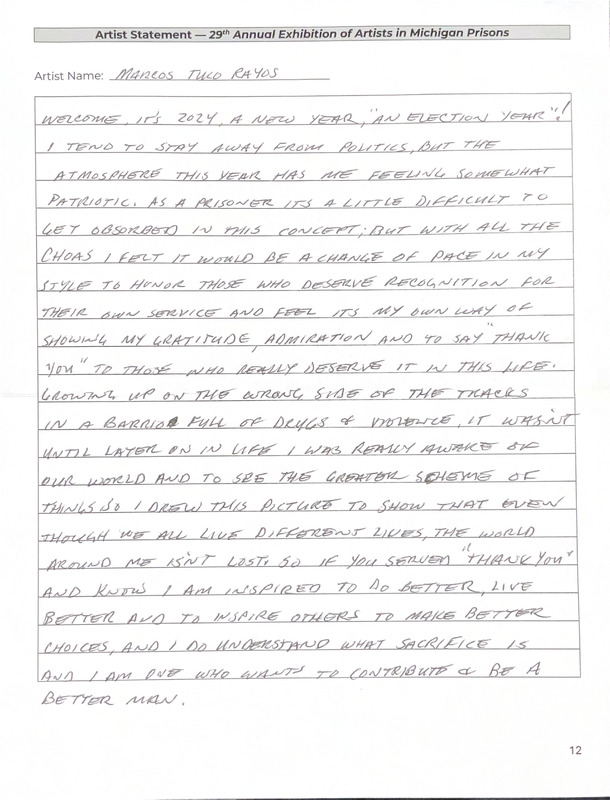 Artist Statement — 29th Annual Exhibition of Artists in Michigan Prisons
Artist Name: MARCOS TULIO RAYOS
WELCOME, IT'S 2024, A NEW YEAR, "AN ELECTION YEAR"!
I TEND TO STAY AWAY FROM POLITICS, BUT THE
ATMOSPHERE THIS YEAR HAS ME FEELING SOMEWHAT
PATRIOTIC. AS A PRISONER ITS A LITTLE DIFFICULT TO
GET OBSORBED IN THIS CONCEPT; BUT WITH ALL THE
CHOAS I FELT IT WOULD BE A CHANGE OF PACE IN MY
STYLE TO HONOR THOSE WHO DESERVE RECOGNITION FOR
THEIR OWN SERVICE AND FEEL ITS MY OWN WAY OF
SHOWING MY GRATITUDE, ADMIRATION AND TO SAY "THANK
YOU" TO THOSE WHO REALLY DESERVE IT IN THIS LIFE.
GROWING UP ON THE WRONG SIDE OF THE TRACKS
IN A BARRIO FULL OF DRUGS & VIOLENCE, IT WASN'T
UNTIL LATER ON IN LIFE I WAS REALLY AWAKE OF
OUR WORLD AND TO SEE THE GREATER SCHEME OF
THINGS SO I DREW THIS PICTURE TO SHOW THAT EVEN
THOUGH WE ALL LIVE DIFFERENT LIVES, THE WORLD
AROUND ME ISN'T LOST. SO IF YOU SERVED "THANK YOU"
AND KNOW I AM INSPIRED TO DO BETTER, LIVE
BETTER AND TO INSPIRE OTHERS TO MAKE BETTER
CHOICES, AND I DO UNDERSTAND WHAT SACRIFICE IS
AND I AM ONE WHO WANTS TO CONTRIBUTE & BE A
BETTER MAN.
12